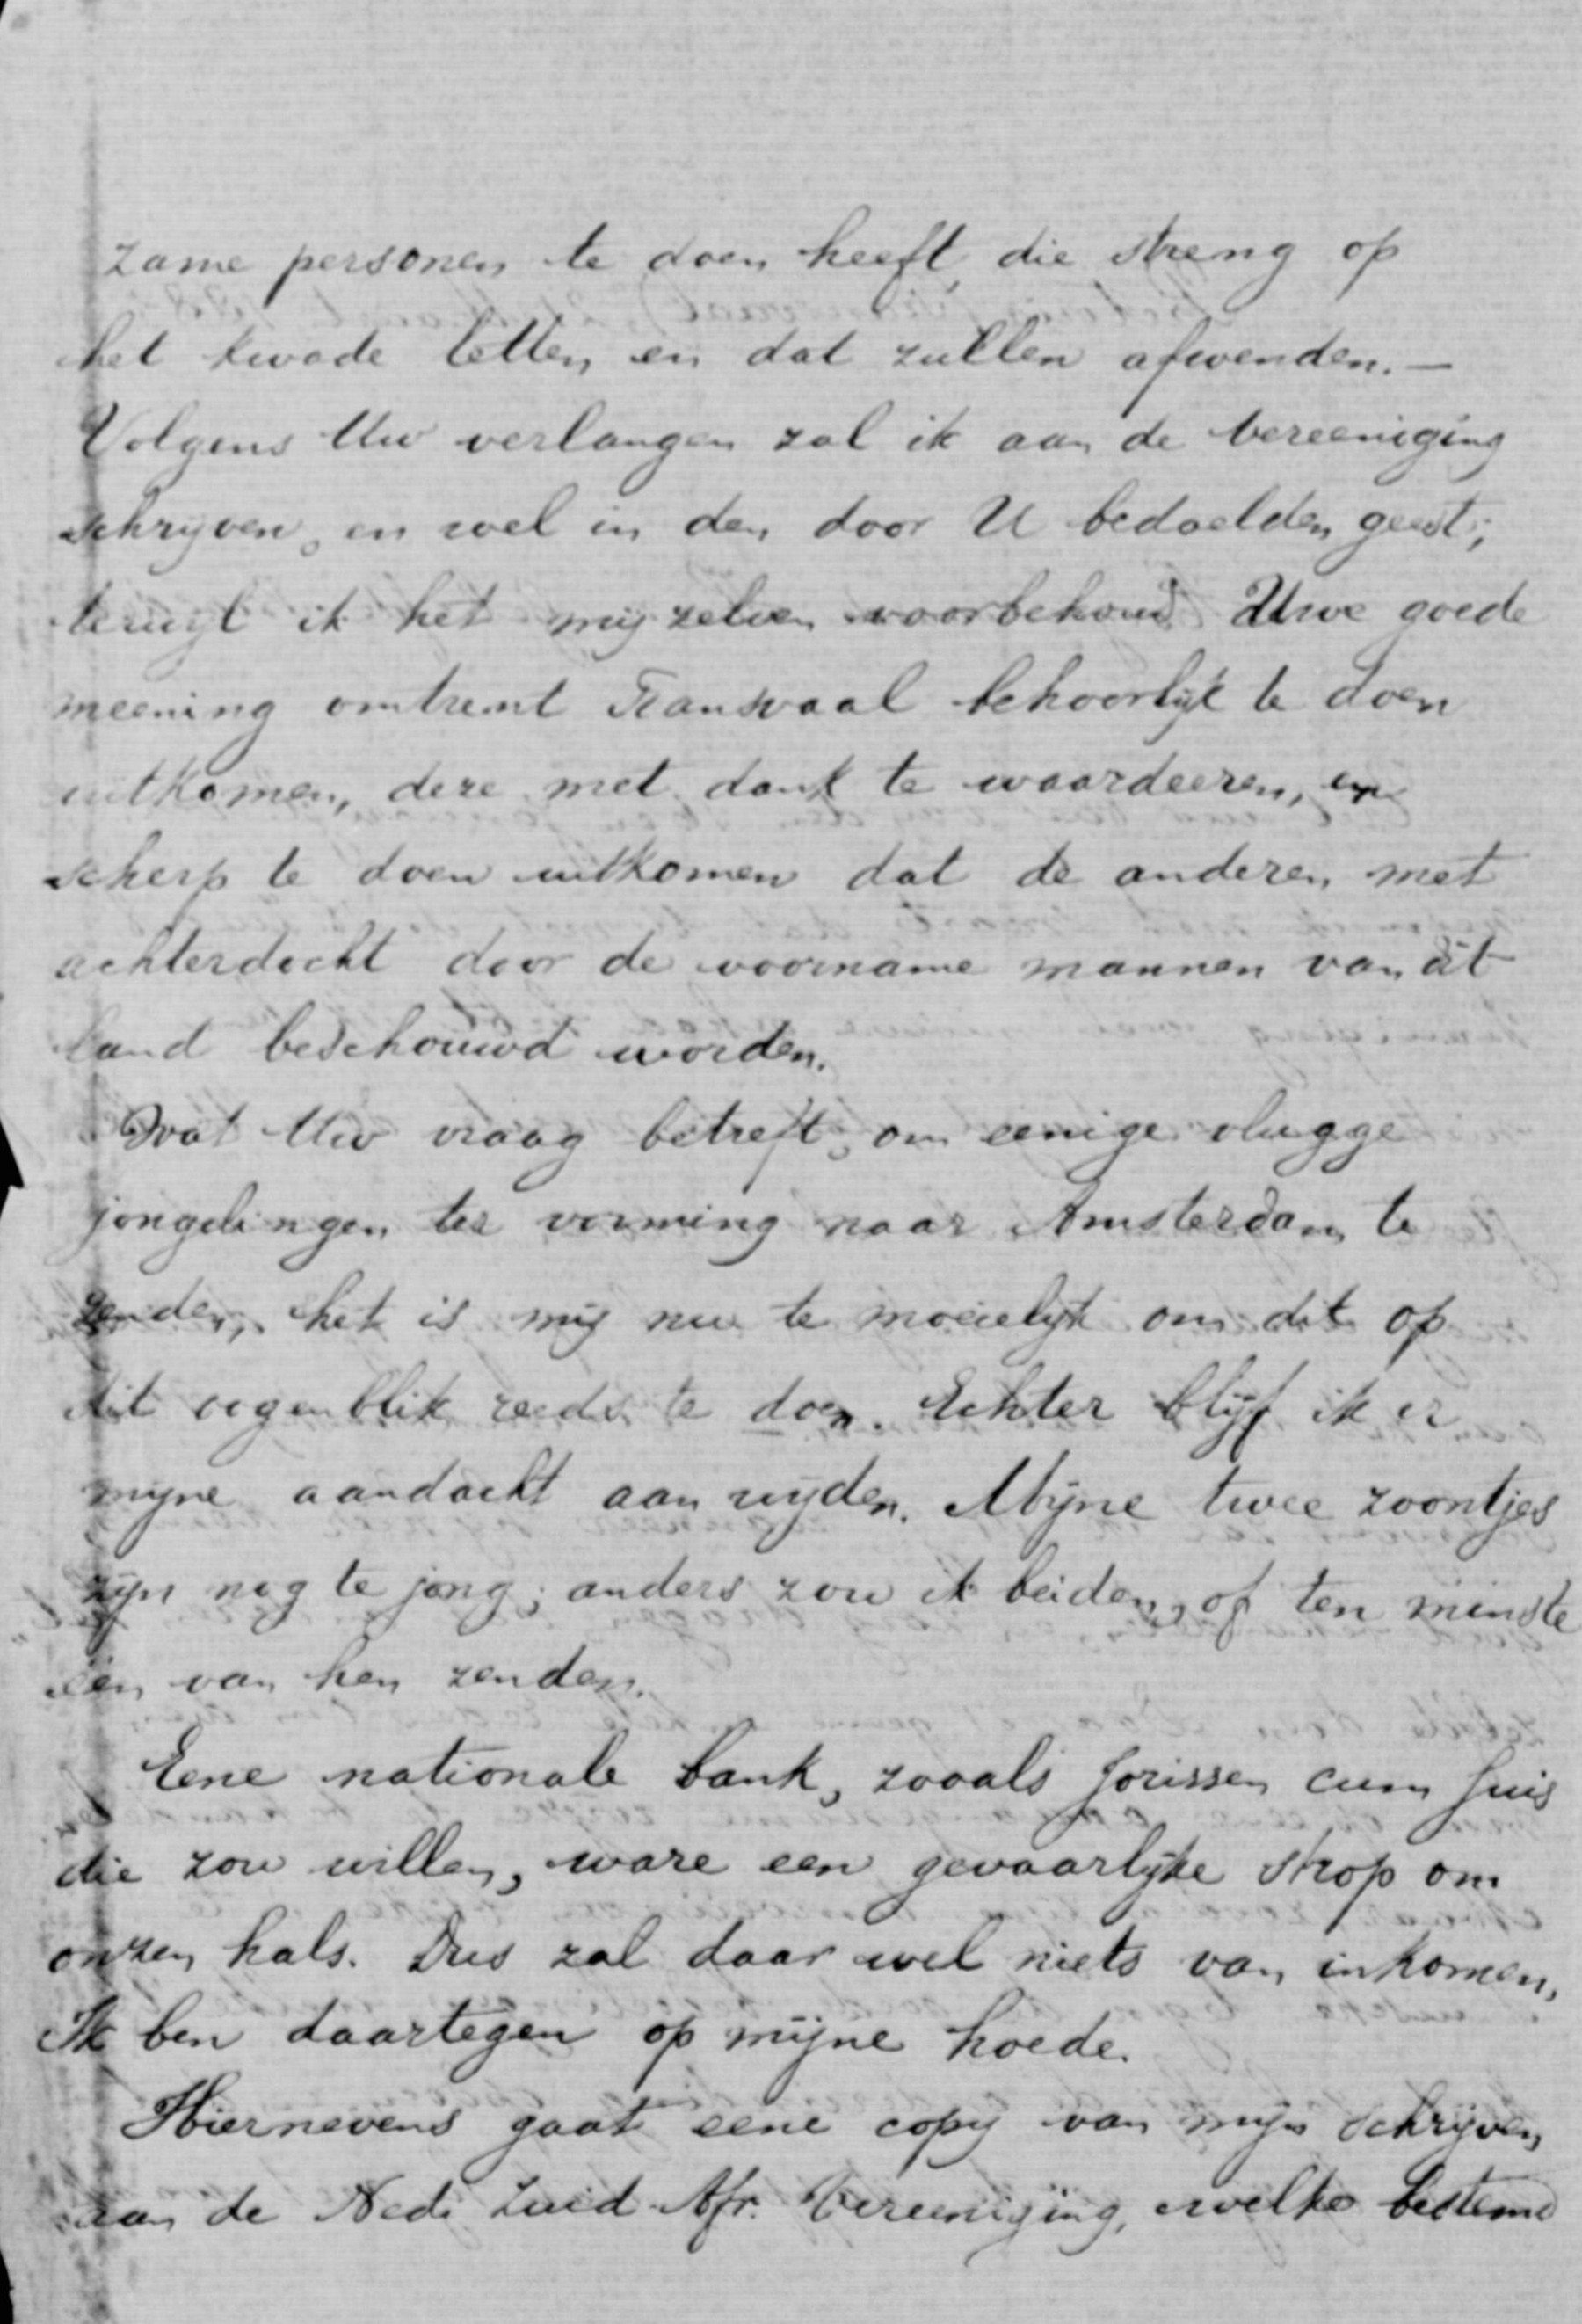 zame personen te doen heeft, die streng op
het kwade letten en dat zullen afwenden. —
Volgens Uw verlangen zal ik aan de vereeniging
schrijven, en wel in den door U bedoelden geest;
terwijl ik het mijzelven voorbehoud Uwe goede
meening omtrent Transvaal behoorlijk te doen
uitkomen, deze met dank te waardeeren, en
scherp te doen uitkomen dat de anderen met
achterdocht door de voorname mannen van dit
land beschouwd worden.
Wat Uw vraag betreft, om eenige vlugge
jongelingen ter vorming naar Amsterdam te
zenden, het is mij nu te moeielijk om dit op
dit oogenblik reeds te doen. Echter blijf ik er
mijne aandacht aan wijden. Mijne twee zoontjes
zijn nog te jong; anders zou ik beiden, of ten minste
één van hen zenden.
Eene nationale bank, zooals Jorissen cum suis
die zou willen, ware een gevaarlijke strop om
onzen hals. Dus zal daar wel niets van inkomen,
Ik ben daartegen op mijne hoede.
Hiernevens gaat eene copij van mijn schrijven
aan de Ned. Zuid Afr. Vereeniging, welke bestemd